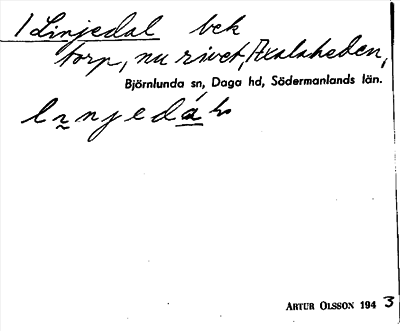 / Linjedal bek
torp, nu rivet, Axalaheden,
Björnlunda sn, Daga hd, Södermanlands län.
Artur Olsson 1943